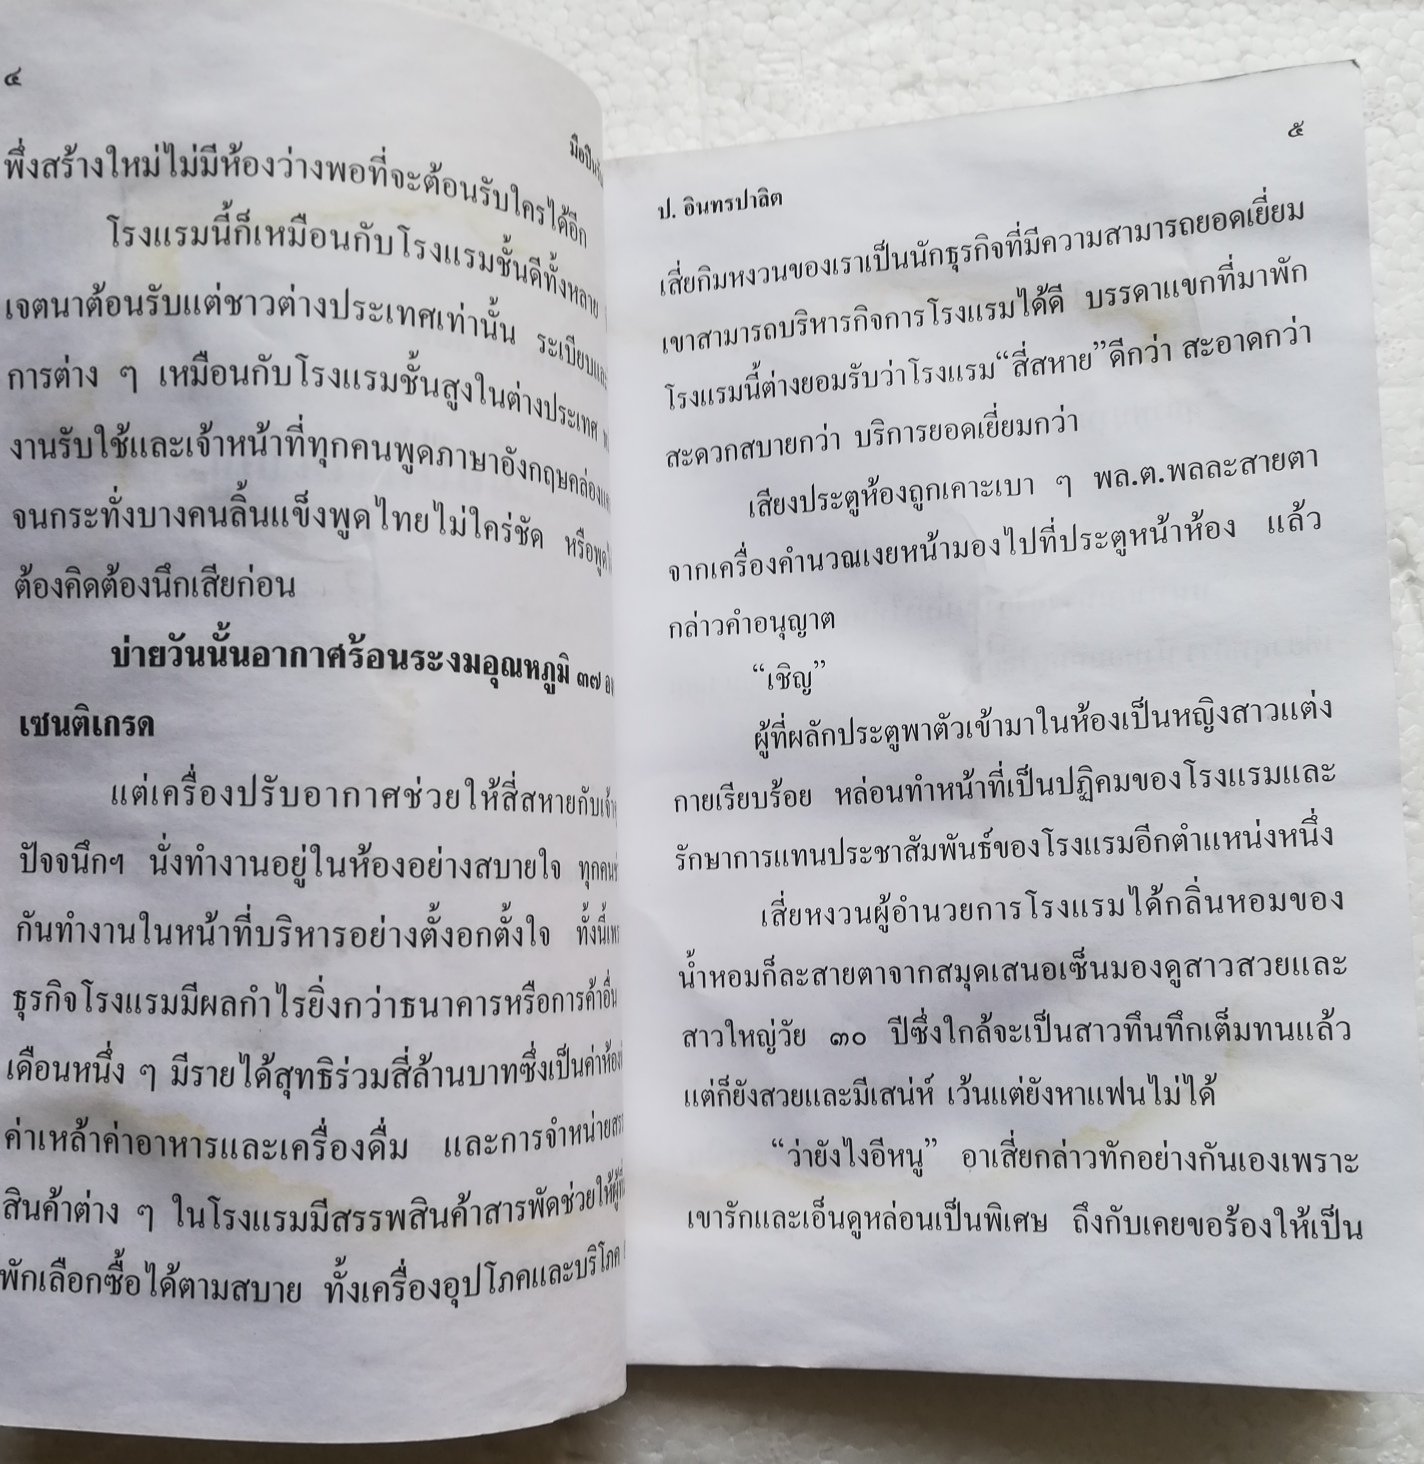 ๔
พึ่งสร้างใหม่ไม่มีห้องว่างพอที่จะต้อนรับใครได้อีก
โรงแรมนี้ก็เหมือนกับโรงแรมชั้นดีทั้งหลาย
เจตนาต้อนรับแต่ชาวต่างประเทศเท่านั้น ระเบียบและ
การต่าง ๆ เหมือนกับโรงแรมชั้นสูงในต่างประเทศ
งานรับใช้และเจ้าหน้าที่ทุกคนพูดภาษาอังกฤษคล่อง
จนกระทั่งบางคนลิ้นแข็งพูดไทยไม่ใคร่ชัด หรือพูด
ต้องคิดต้องนึกเสียก่อน
บ่ายวันนั้นอากาศร้อนระงมอุณหภูมิ ๓๗
เซนติเกรด
แต่เครื่องปรับอากาศช่วยให้สี่สหายกับ
ปัจจนึกฯ นั่งทำงานอยู่ในห้องอย่างสบายใจ ทุกคน
กันทำงานในหน้าที่บริหารอย่างตั้งอกตั้งใจ ทั้งนี้
ธุรกิจโรงแรมมีผลกำไรยิ่งกว่าธนาคารหรือการค้าอื่น
เดือนหนึ่ง ๆ มีรายได้สุทธิร่วมสี่ล้านบาทซึ่งเป็นค่าห้อง
ค่าเหล้าค่าอาหารและเครื่องดื่ม และการจำหน่าย
สินค้าต่าง ๆ ในโรงแรมมีสรรพสินค้าสารพัดช่วยให้
พักเลือกซื้อได้ตามสบาย ทั้งเครื่องอุปโภคและบริโภค
๕
ป. อินทรปาลิต
เสี่ยกิมหงวนของเราเป็นนักธุรกิจที่มีความสามารถยอดเยี่ยม
เขาสามารถบริหารกิจการโรงแรมได้ดี บรรดาแขกที่มาพัก
โรงแรมนี้ต่างยอมรับว่าโรงแรม“สี่สหาย”ดีกว่า สะอาดกว่า
สะดวกสบายกว่า บริการยอดเยี่ยมกว่า
เสียงประตูห้องถูกเคาะเบา ๆ พล.ต.พลละสายตา
จากเครื่องคำนวณเงยหน้ามองไปที่ประตูหน้าห้อง แล้ว
กล่าวคำอนุญาต
“เชิญ”
ผู้ที่ผลักประตูพาตัวเข้ามาในห้องเป็นหญิงสาวแต่ง
กายเรียบร้อย หล่อนทำหน้าที่เป็นปฏิคมของโรงแรมและ
รักษาการแทนประชาสัมพันธ์ของโรงแรมอีกตำแหน่งหนึ่ง
เสี่ยหงวนผู้อำนวยการโรงแรมได้กลิ่นหอมของ
น้ำหอมก็ละสายตาจากสมุดเสนอเซ็นมองดูสาวสวยและ
สาวใหญ่วัย ๓๐ ปีซึ่งใกล้จะเป็นสาวทึนทึกเต็มทนแล้ว
แต่ก็ยังสวยและมีเสน่ห์ เว้นแต่ยังหาแฟนไม่ได้
“ว่ายังไงอีหนู” อาเสี่ยกล่าวทักอย่างกันเองเพราะ
เขารักและเอ็นดูหล่อนเป็นพิเศษ ถึงกับเคยขอร้องให้เป็น